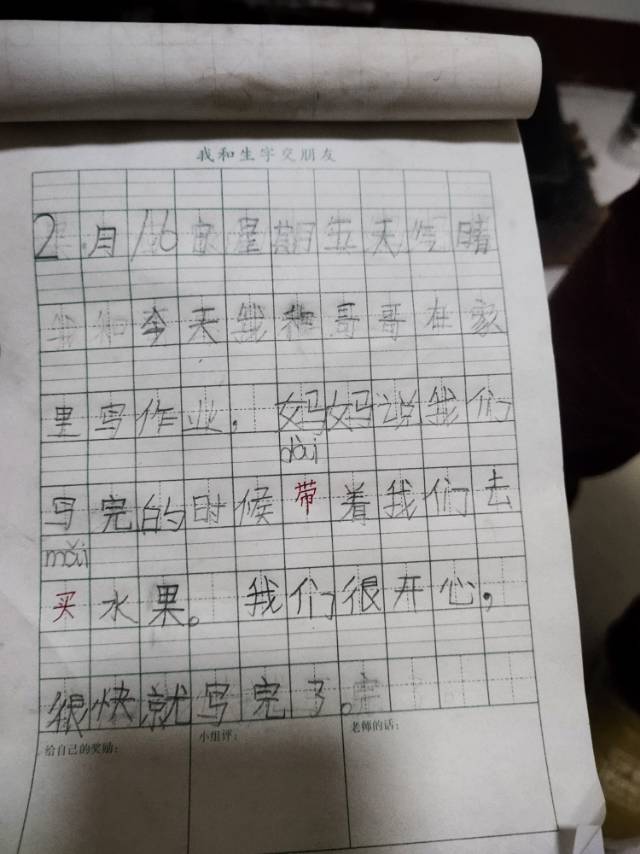 我和生字交朋友
2月16日星期五天气晴
今天我和哥哥在家
里写作业，妈妈说我们
dài
写完的时候带着我们去
mǎi
买水果。我们很开心，
很快就写完了。
给自己的奖励：
小组评：
老师的话：